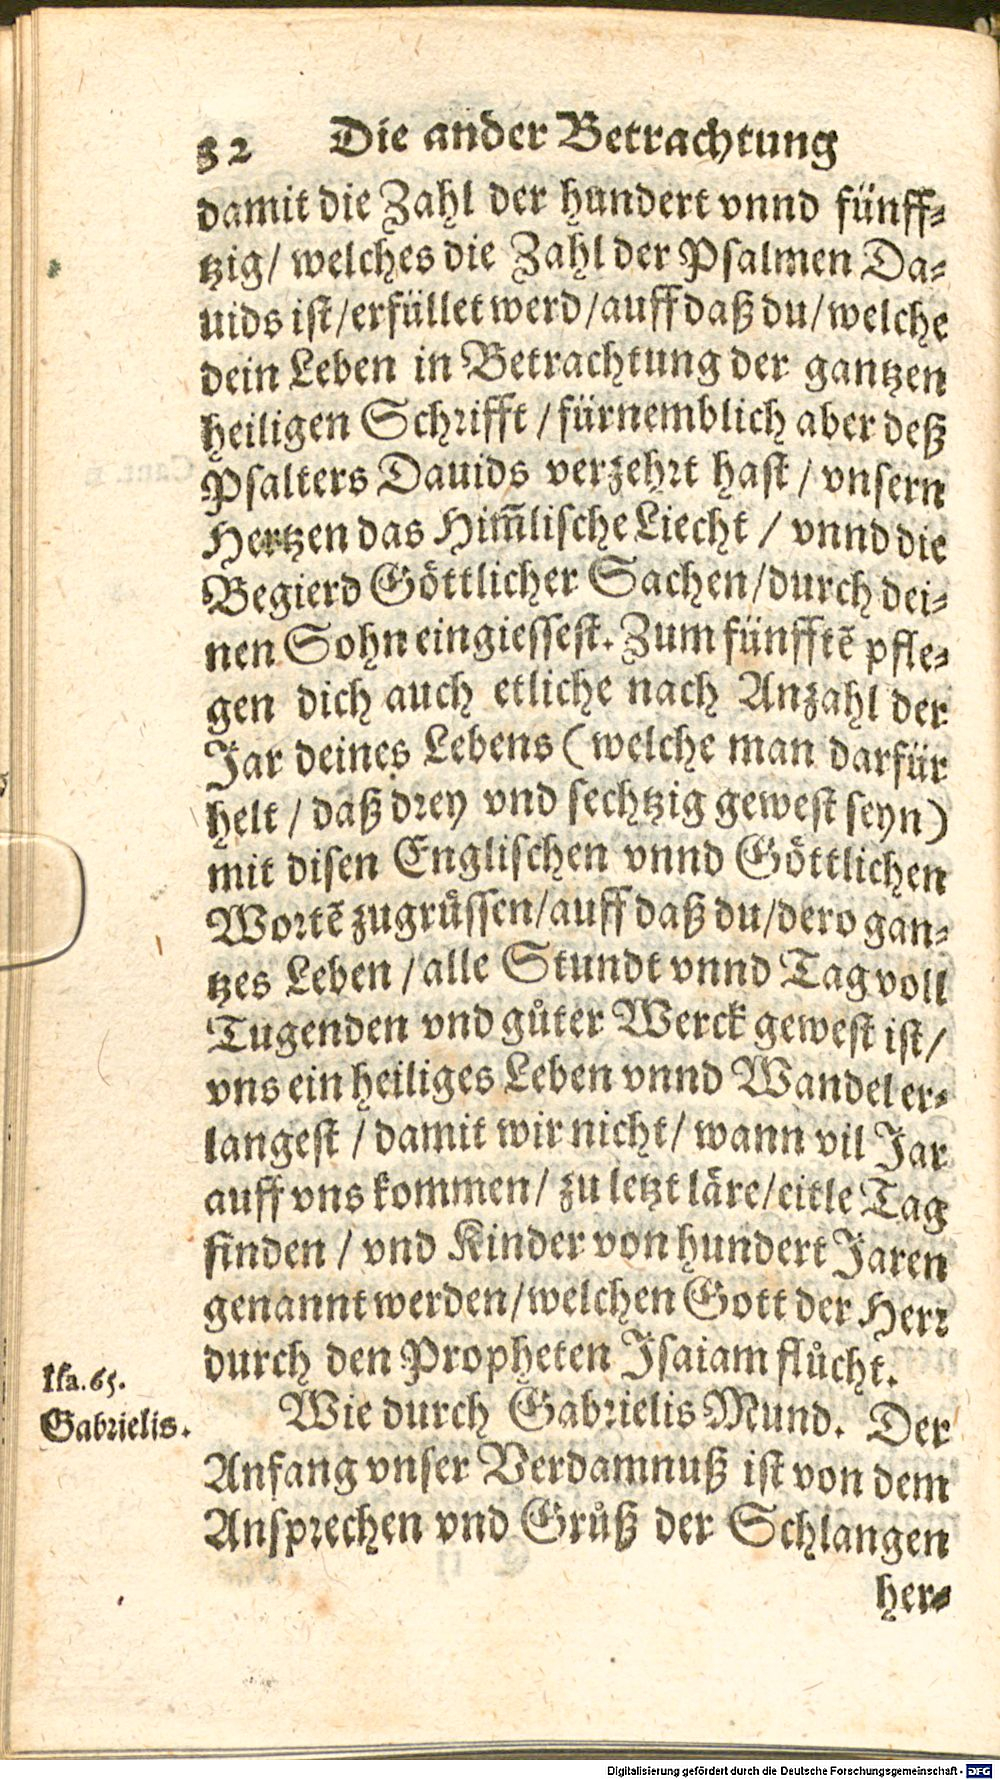 32 Die ander Betrachtung
damit die Zahl der hundert vnnd fünff⸗
tzig/ welches die Zahl der Psalmen Da⸗
uids ist/erfüllet werd/auff daß du/welche
dein Leben in Betrachtung der gantzen
heiligen Schrifft / fürnemblich aber deß
Psalters Dauids verzehrt hast / vnsern
Hertzen das Him̃lische Liecht / vnnd die
Begierd Göttlicher Sachen/durch dei⸗
nen Sohn eingiessest. Zum fünfftẽ pfle⸗
gen dich auch etliche nach Anzahl der
Jar deines Lebens (welche man darfür
helt / daß drey vnd sechtzig gewest seyn)
mit disen Englischen vnnd Göttlichen
Wortẽ zugrüssen/auff daß du/dero gan⸗
tzes Leben / alle Stundt vnnd Tag voll
Tugenden vnd gůter Werck gewest ist/
vns ein heiliges Leben vnnd Wandel er⸗
langest / damit wir nicht/ wann vil Jar
auff vns kommen/ zu letzt läre/eitle Tag
finden / vnd Kinder von hundert Jaren
genannt werden/welchen Gott der Herr
durch den Propheten Isaiam flůcht.
Isa. 65.
Gabrielis.
Wie durch Gabrielis Mund. Der
Anfang vnser Verdamnuß ist von dem
Ansprechen vnd Grůß der Schlangen
her⸗
Digitalisierung gefördert durch die Deutsche Forschungsgemeinschaft - DFG